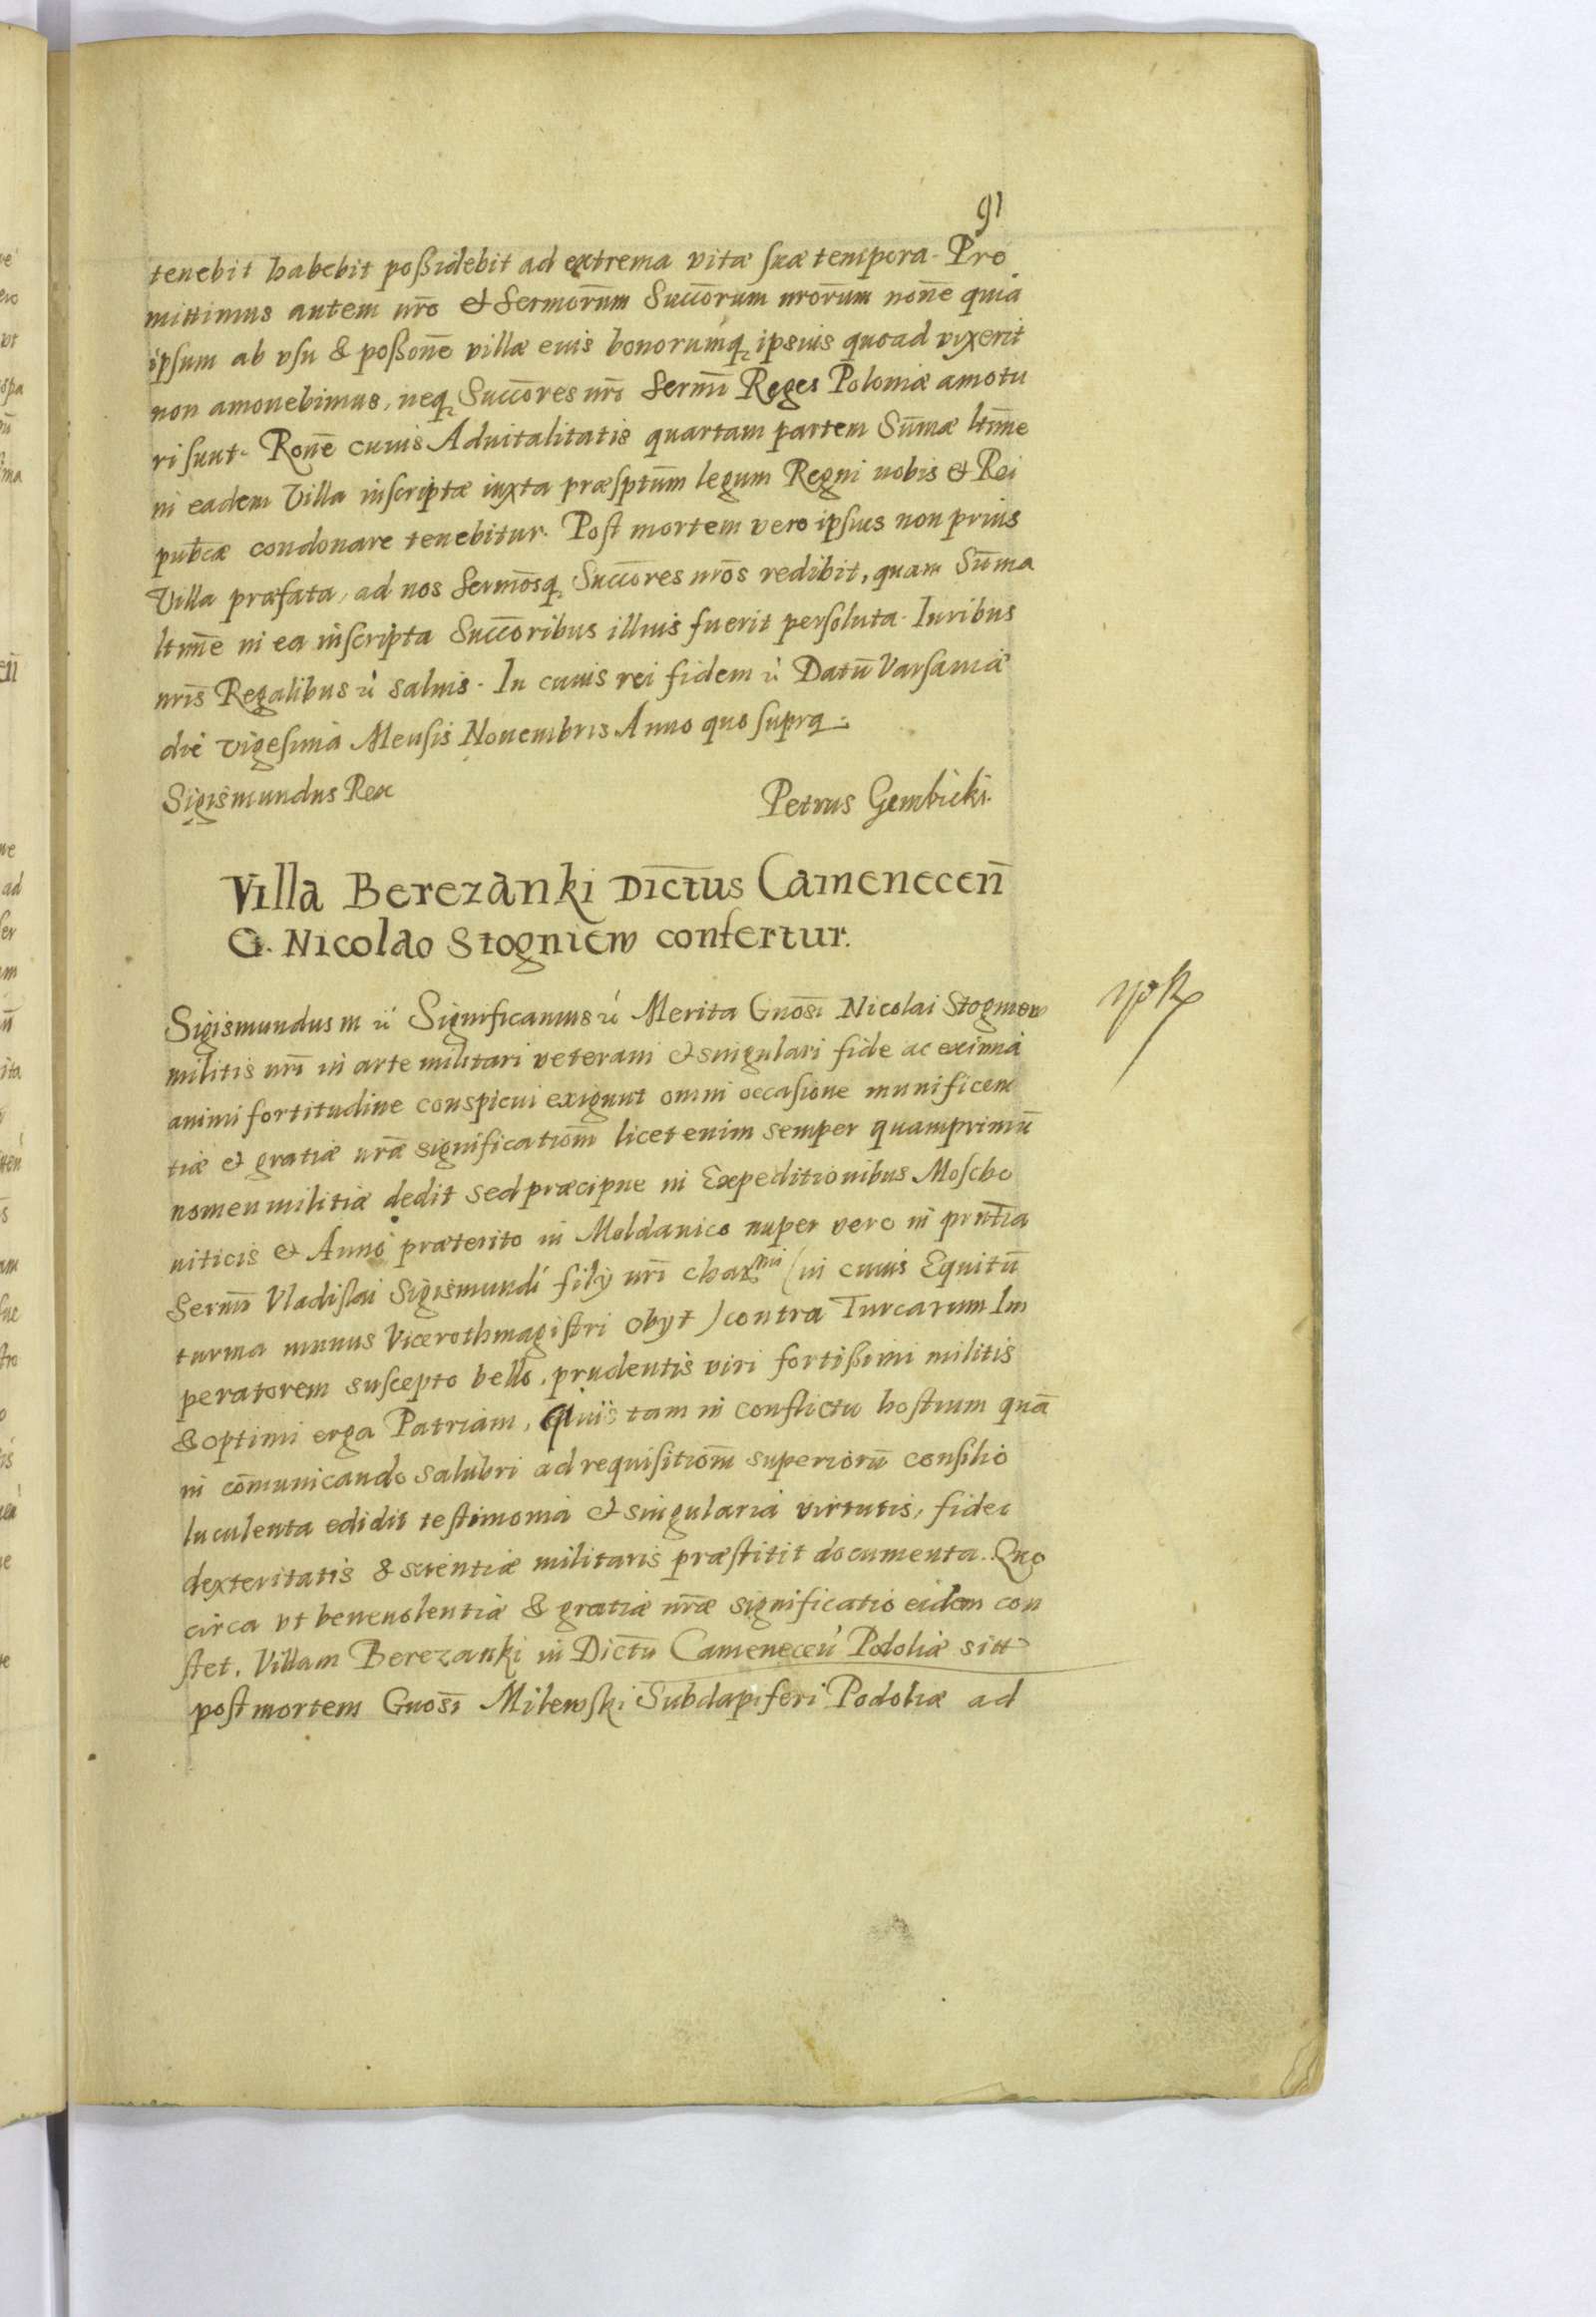 91
tenebit habebit poßidebit ad extrema vitæ suæ tempora. Pro
mittimus autem nr̄o et Sermorūm Succōrum nrorūm nōne quia
ipsum ab vsu & poßonē villæ eius bonorumq ipsius quoad vixerit
non amouebimus, neq Succōres nrī Sermī Reges Poloniæ amotu
ri sunt. Ronē cuius Aduitalitatis quartam partem Sūmæ ltimē
in eadem Villa inscriptæ iuxta præsptūm legum Regni nobis et Rei
pubcæ condonare tenebitur. Post mortem vero ipsius non prius
Villa præfata, ad nos Sermōsq Succōres nrōs redibit, quam Sūma
ltimē in ea inscripta Succōribus illius fuerit persoluta. Iuribus
nrīs Regalibus ꝛ saluis. In cuius rei fidem ꝛ Datū Varsauiæ
die vigesima Mensis Nouembris Anno quo supra.
Sigismundus Rex Petrus Gembicki.
Villa Berezanki Dictus Camenecen̄
G. Nicolao Stogniew confertur.
Sigismundus III ꝛ Significamus ꝛ Merita Gnosī Nicolai Stogniew
militis nrī in arte militari veterani et singulari fide ac eximia
animi fortitudine conspicui exigunt omni occasione munificen
tiæ et gratiæ nrǣ significatiōm licet enim semper quamprimū
nomen militiæ dedit sed præcipue in Expeditionibus Moscho
uiticis et Anno præterito in Moldauico nuper vero in prntīa
Sermī Vladislai Sigismundi filÿ nrī charmi (in cuius Equitū
turma munus Vicerothmagistri obyt) contra Turcarum Im
peratorem suscepto bello, prudentis viri fortißimi militis
& optimi erga Patriam, Ciuis tam in conflictu hostium quā
in cōmunicando salubri ad requisitiōm superiorū consilio
luculenta edidit testimonia et singularia virtutis, fidei
dexteritatis & scientiæ militaris præstitit documenta. Quo
circa vt beneuolentiæ & gratiæ nrǣ significatio eidem con
stet. Villam Berezanki in Dictū Camenecen̄ Podoliæ sitt
post mortem Gnosī Milewski Subdapiferi Podoliæ ad